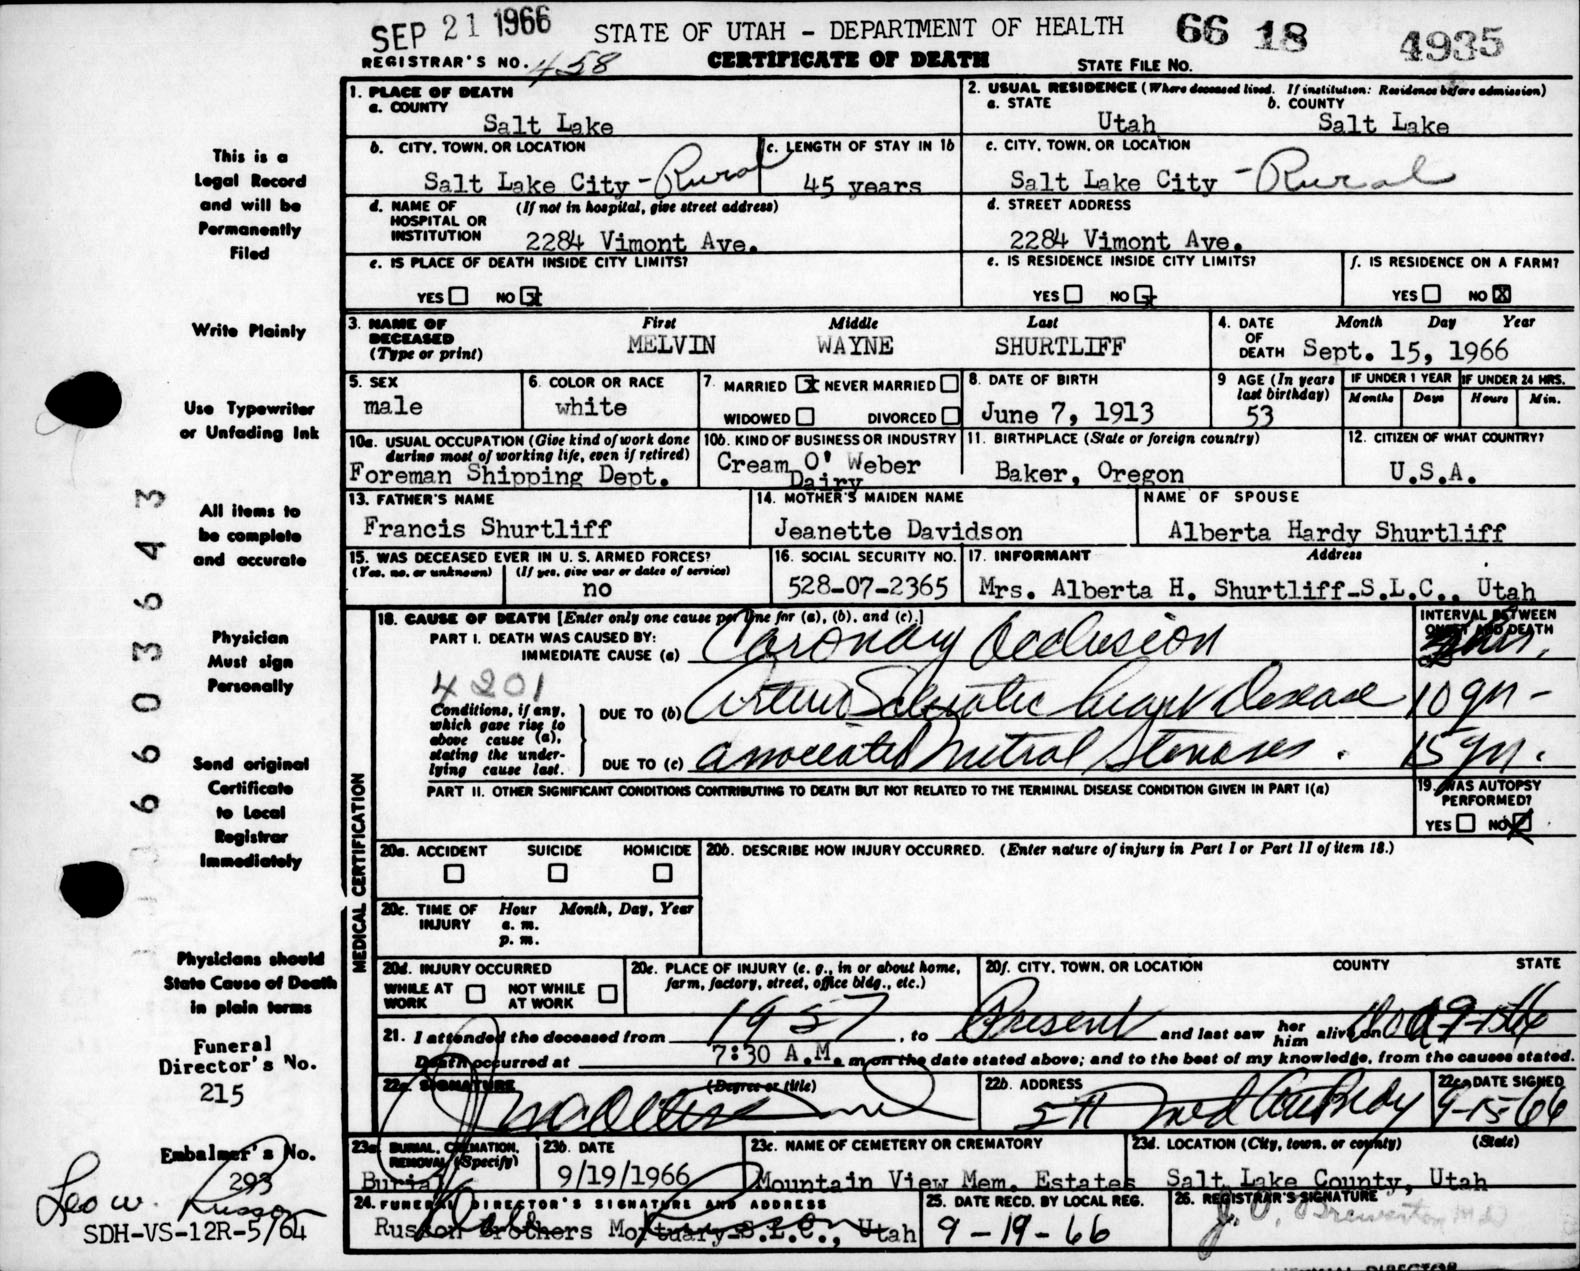 SEP 21 1966 STATE OF UTAH - DEPARTMENT OF HEALTH 66 18 4935
REGISTRAR'S NO. 458 CERTIFICATE OF DEATH STATE FILE NO.
1. PLACE OF DEATH
a. COUNTY
Salt Lake
2. USUAL RESIDENCE (Where deceased lived. If institution: Residence before admission)
a. STATE b. COUNTY
Utah Salt Lake
b. CITY, TOWN, OR LOCATION
Salt Lake City - Rural
c. LENGTH OF STAY IN 1b
45 years
c. CITY, TOWN, OR LOCATION
Salt Lake City - Rural
d. NAME OF (If not in hospital, give street address)
HOSPITAL OR
INSTITUTION 2284 Vimont Ave.
d. STREET ADDRESS
2284 Vimont Ave.
e. IS PLACE OF DEATH INSIDE CITY LIMITS?
YES NO x
e. IS RESIDENCE INSIDE CITY LIMITS?
YES NO x
f. IS RESIDENCE ON A FARM?
YES NO X
3. NAME OF DECEASED (Type or print)
First Middle Last
MELVIN WAYNE SHURTLIFF
4. DATE OF DEATH
Month Day Year
Sept. 15, 1966
5. SEX
male
6. COLOR OR RACE
white
7. MARRIED x NEVER MARRIED
WIDOWED DIVORCED
8. DATE OF BIRTH
June 7, 1913
9 AGE (In years last birthday)
53
IF UNDER 1 YEAR IF UNDER 24 HRS.
Months Days Hours Min.
10a. USUAL OCCUPATION (Give kind of work done
during most of working life, even if retired)
Foreman Shipping Dept.
10b. KIND OF BUSINESS OR INDUSTRY
Cream O' Weber
Dairy
11. BIRTHPLACE (State or foreign country)
Baker, Oregon
12. CITIZEN OF WHAT COUNTRY?
U.S.A.
13. FATHER'S NAME
Francis Shurtliff
14. MOTHER'S MAIDEN NAME
Jeanette Davidson
NAME OF SPOUSE
Alberta Hardy Shurtliff
15. WAS DECEASED EVER IN U. S. ARMED FORCES?
(Yes, no, or unknown) (If yes, give war or dates of service)
no
16. SOCIAL SECURITY NO.
528-07-2365
17. INFORMANT Address
Mrs. Alberta H. Shurtliff-S.L.C., Utah
MEDICAL CERTIFICATION
18. CAUSE OF DEATH [Enter only one cause per line for (a), (b), and (c).]
INTERVAL BETWEEN
ONSET AND DEATH
PART I. DEATH WAS CAUSED BY:
IMMEDIATE CAUSE (a) Coronary Occlusion
4201
Conditions, if any,
which gave rise to
above cause (a),
stating the under-
lying cause last.
DUE TO (b) Arterio Sclerotic heart Disease 10 yr -
DUE TO (c) associated Mitral Stenosis. 15 yr.
PART II. OTHER SIGNIFICANT CONDITIONS CONTRIBUTING TO DEATH BUT NOT RELATED TO THE TERMINAL DISEASE CONDITION GIVEN IN PART I(a)
19. WAS AUTOPSY
PERFORMED?
YES NO X
20a. ACCIDENT SUICIDE HOMICIDE
20b. DESCRIBE HOW INJURY OCCURRED. (Enter nature of injury in Part I or Part II of item 18.)
20c. TIME OF INJURY Hour Month, Day, Year
a. m.
p. m.
20d. INJURY OCCURRED
WHILE AT WORK NOT WHILE AT WORK
20e. PLACE OF INJURY (e. g., in or about home,
farm, factory, street, office bldg., etc.)
20f. CITY, TOWN, OR LOCATION COUNTY STATE
21. I attended the deceased from 1957, to Present and last saw her him alive on 9-15-66
Death occurred at 7:30 A.M. m on the date stated above; and to the best of my knowledge, from the causes stated.
22a. SIGNATURE (Degree or title)
22b. ADDRESS
22c. DATE SIGNED
9-15-66
23a. BURIAL, CREMATION,
REMOVAL (Specify)
Burial
23b. DATE
9/19/1966
23c. NAME OF CEMETERY OR CREMATORY
Mountain View Mem. Estates
23d. LOCATION (City, town, or county) (State)
Salt Lake County, Utah
24. FUNERAL DIRECTOR'S SIGNATURE AND ADDRESS
Russon Brothers Mortuary-S.L.C., Utah
25. DATE RECD. BY LOCAL REG.
9-19-66
26. REGISTRAR'S SIGNATURE
This is a
Legal Record
and will be
Permanently
Filed
Write Plainly
Use Typewriter
or Unfading Ink
All items to
be complete
and accurate
Physician
Must sign
Personally
Send original
Certificate
to Local
Registrar
Immediately
Physicians should
State Cause of Death
in plain terms
Funeral
Director's No.
215
Embalmer's No.
293
Leo W. Russon
SDH-VS-12R-5/64